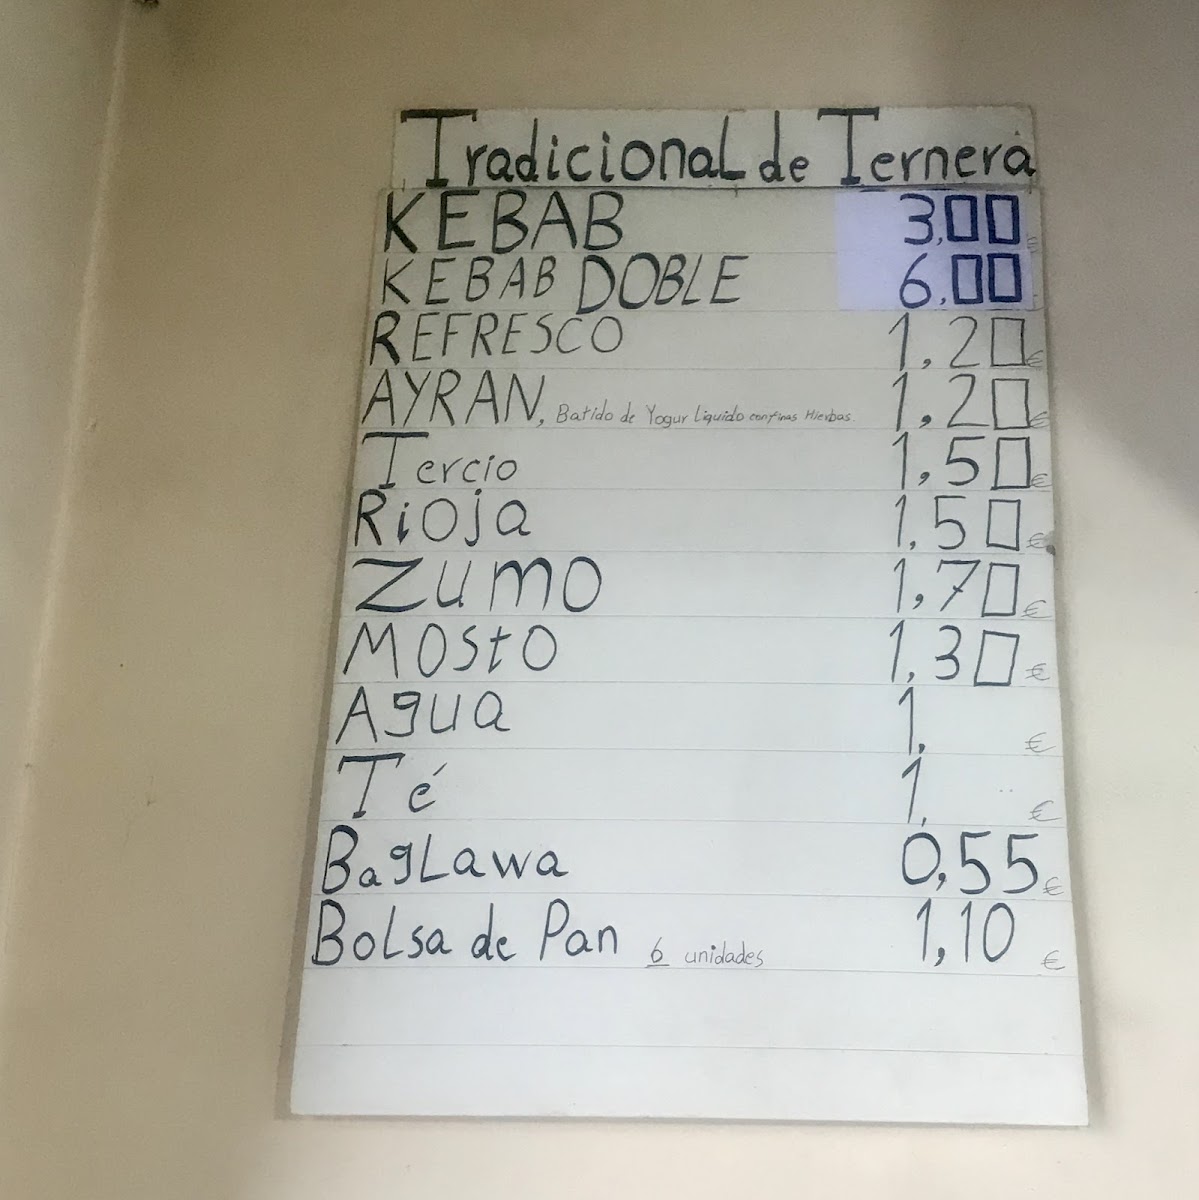 Tradicional de Ternera
KEBAB 3,00 €
KEBAB DOBLE 6,00
REFRESCO 1,20 €
AYRAN, Batido de Yogur Liquido con finas Hierbas. 1,20 €
Tercio 1,50 €
Rioja 1,50 €
ZUMO 1,70 €
MOSTO 1,30 €
Agua 1, €
Té 1, €
BagLawa 0,55 €
Bolsa de Pan 6 unidades 1,10 €